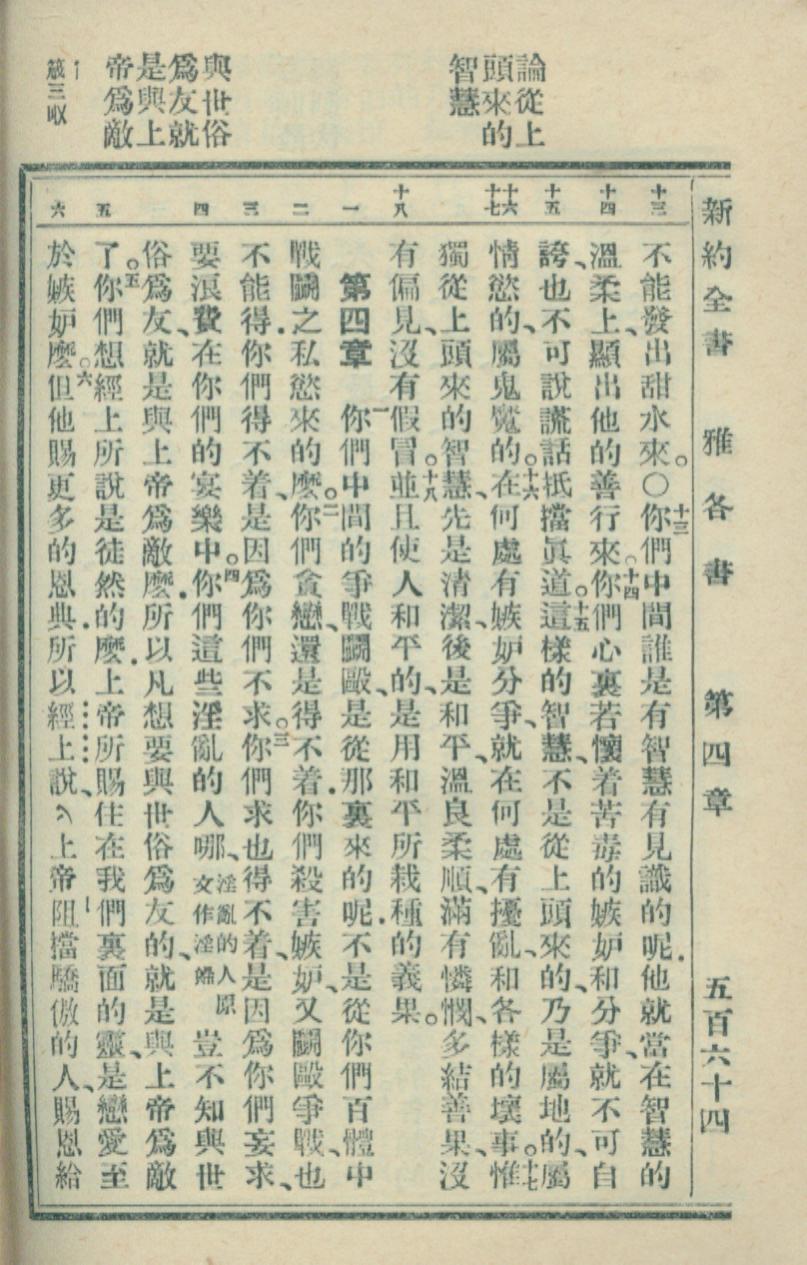 新約全書 雅各書 第四章 五百六十四
論從上
頭來的
智慧
與世俗
爲友就
是與上
帝爲敵
箴三
十三
不能發出甜水來。〇十三你們中間誰是有智慧有見識的呢.他就當在智慧的
十四
溫柔上、顯出他的善行來。十四你們心裏若懷着苦毒的嫉妒和分爭、就不可自
十五
誇、也不可說謊話抵擋眞道。十五這樣的智慧、不是從上頭來的、乃是屬地的、屬
十六
十七
情慾的、屬鬼魔的。十六在何處有嫉妒分爭、就在何處有擾亂、和各樣的壞事。十七惟
獨從上頭來的智慧、先是清潔、後是和平、溫良柔順、滿有憐憫、多結善果、沒
十八
有偏見、沒有假冒。十八並且使人和平的、是用和平所栽種的義果。
一
第四章 一你們中間的爭戰鬭毆、是從那裏來的呢.不是從你們百體中
二
戰鬭之私慾來的麼。二你們貪戀、還是得不着.你們殺害嫉妒、又鬭毆爭戰、也
三
不能得.你們得不着、是因爲你們不求。三你們求也得不着、是因爲你們妄求、
四
要浪費在你們的宴樂中。四你們這些淫亂的人哪、淫亂的人原文作淫婦豈不知與世
俗爲友、就是與上帝爲敵麼.所以凡想要與世俗爲友的、就是與上帝爲敵
五
了。五你們想經上所說是徒然的麼.上帝所賜住在我們裏面的靈、是戀愛至
六
於嫉妒麼。六但他賜更多的恩典.所以經上說、上帝阻擋驕傲的人、賜恩給